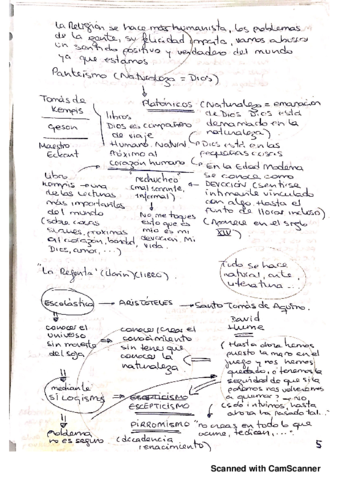 La Religión se hace más humanista, los problemas
de la gente, su felicidad importa, vamos a buscar
un sentido positivo y verdadero del mundo
ya que estamos
Panteísmo (Naturaleza = Dios)
Tomás de
Kempis
Gerson
Maestro
Eckart
Platónicos (Naturaleza = emanación
de Dios. Dios está
derramado en la
naturaleza).
libros
Dios es compañero
de viaje
Humano Natural
máximo al
corazón humano
Dios está en las
pequeñas cosas
En la Edad Moderna
se conoce como
DEVOCIÓN (sentirse
íntimamente vinculado
con algo. Hasta el
punto de llorar incluso)
(Aparece en el siglo
XIV)
Libro
Kempis → una
de las lecturas
más importantes
del mundo
(sobre cosas
suaves, próximas
al corazón, bondad,
Dios, amor, ...)
No me toques
esto que es
mío es mi
devoción. Mi
vida.
"La Regenta" (Clarín)
Todo se hace
natural, arte,
literatura...
Escolástica → ARISTÓTELES → Santo Tomás de Aquino.
conocer el
universo
sin moverte
del sofá
conocer/crear el
conocimiento
sin tener que
conocer la
naturaleza.
David
Hume
(Hasta ahora hemos
puesto la mano en el
fuego y nos hemos
quemado, o tenemos la
seguridad de que si la
ponemos nos volvemos
a quemar? → no
lo sé intuimos, hasta
ahora ha pasado tal...
mediante
SILOGISMOS
ESCEPTICISMO
Problema
no es seguro
PIRRONISMO "no creas en todo lo que
ocurre, te dicen, ...".
(decadencia
renacimiento)
5
Scanned with CamScanner